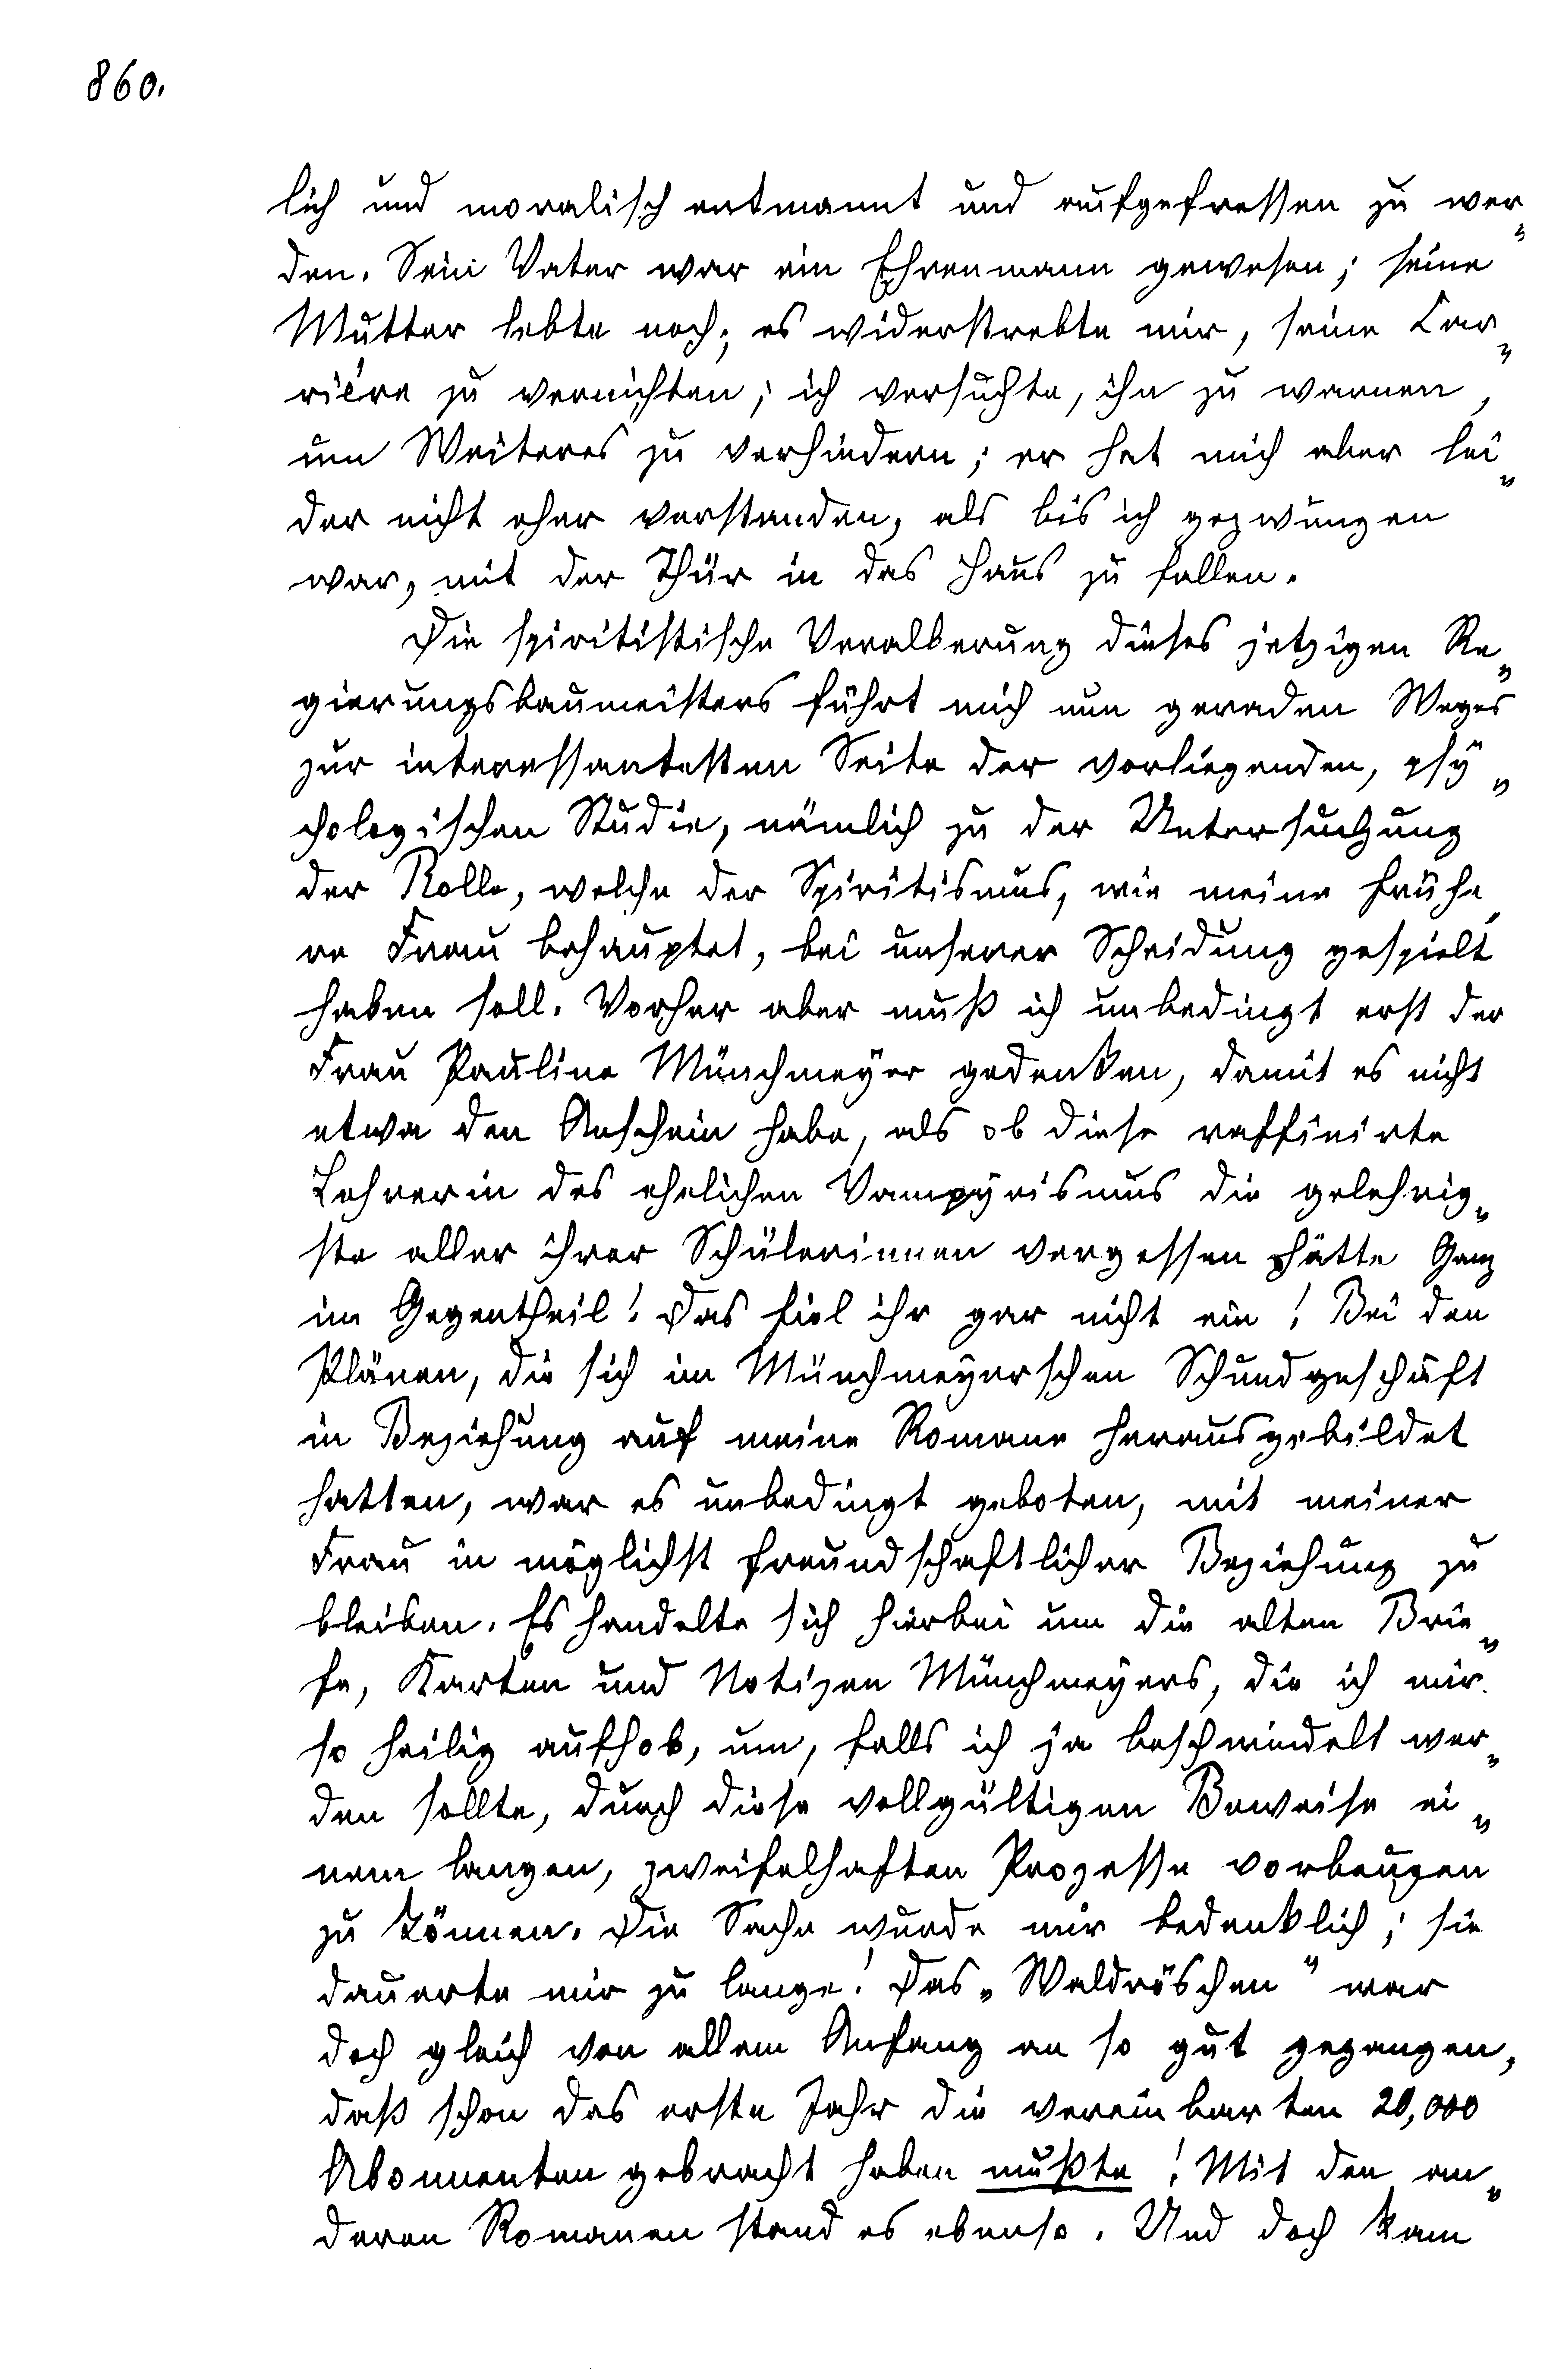 860.
lich und moralisch entmannt und aufgefressen zu wer„
den. Sein Vater war ein Ehrenmann gewesen; seine
Mutter lebte noch; es widerstrebte mir, seine Car„
rière zu vernichten; ich versuchte, ihn zu warnen,
um Weiteres zu verhindern; er hat mich aber lei„
der nicht eher verstanden, als bis ich gezwungen
war, mit der Thür in das Haus zu fallen.
Die spiritistische Veralberung dieses jetzigen Re„
gierungsbaumeisters führt mich nun geraden Weges
zur interessantesten Seite der vorliegenden, psy„
chologischen Studie, nämlich zu der Untersuchung
der Rolle, welche der Spiritismus, wie meine frühe„
re Frau behauptet, bei unserer Scheidung gespielt
haben soll. Vorher aber muß ich unbedingt erst der
Frau Pauline Münchmeyer gedenken, damit es nicht
etwa den Anschein habe, als ob diese raffinirte
Lehrerin des ehelichen Vampyrismus die gelehrig„
ste aller ihrer Schülerinnen vergessen hätte Ganz
im Gegentheil! Das fiel ihr gar nicht ein! Bei den
Plänen, die sich im Münchmeyerschen Schundgeschäft
in Beziehung auf meine Romane herausgebildet
hatten, war es unbedingt geboten, mit meiner
Frau in möglichst freundschaftlicher Beziehung zu
bleiben. Es handelte sich hierbei um die alten Brie„
fe, Karten und Notizen Münchmeyers, die ich mir
so heilig aufhob, um, falls ich ja beschwindelt wer„
den sollte, durch diese vollgültigen Beweise ei„
nem langen, zweifelhaften Prozesse vorbeugen
zu können. Die Sache wurde mir bedenklich; sie
dauerte mir zu lange! Das „Waldröschen" war
doch gleich von allem Anfang an so gut gegangen,
daß schon das erste Jahr die vereinbarten 20,000
Abonnenten gebracht haben mußte! Mit den an„
deren Romanen stand es ebenso. Und doch kam